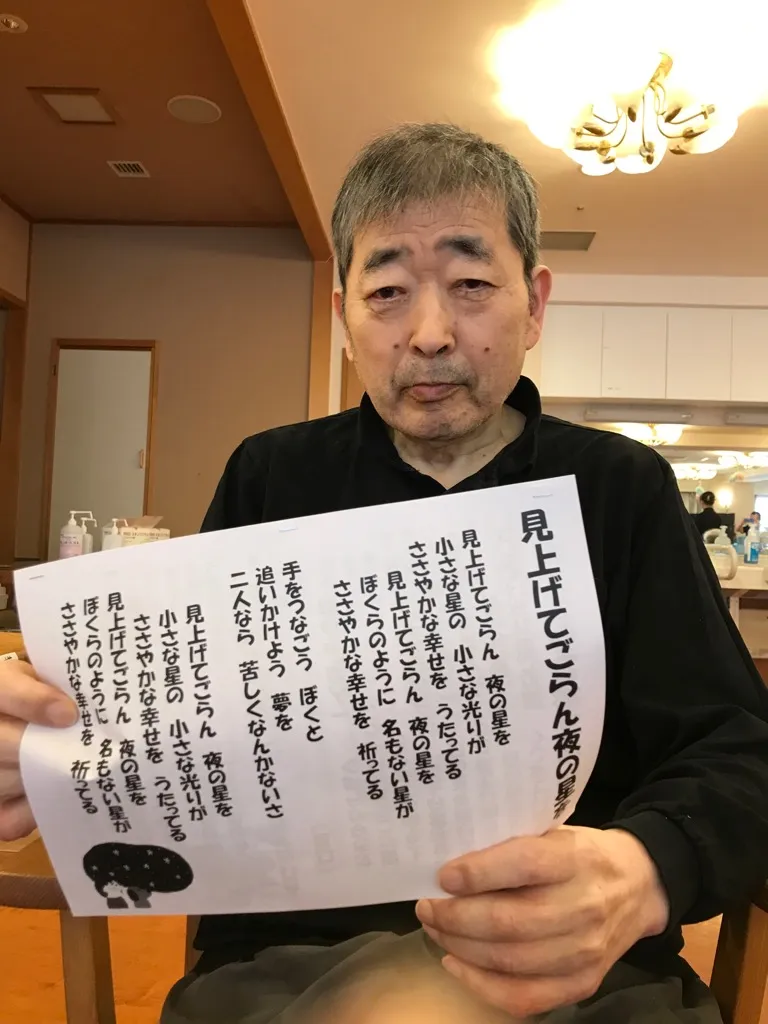 見上げてごらん夜の星を
見上げてごらん 夜の星を
小さな星の 小さな光りが
ささやかな幸せを うたってる
見上げてごらん 夜の星を
ぼくらのように 名もない星が
ささやかな幸せを 祈ってる
手をつなごう ぼくと
追いかけよう 夢を
二人なら 苦しくなんかないさ
見上げてごらん 夜の星を
小さな星の 小さな光りが
ささやかな幸せを うたってる
見上げてごらん 夜の星を
ぼくらのように 名もない星が
ささやかな幸せを 祈ってる